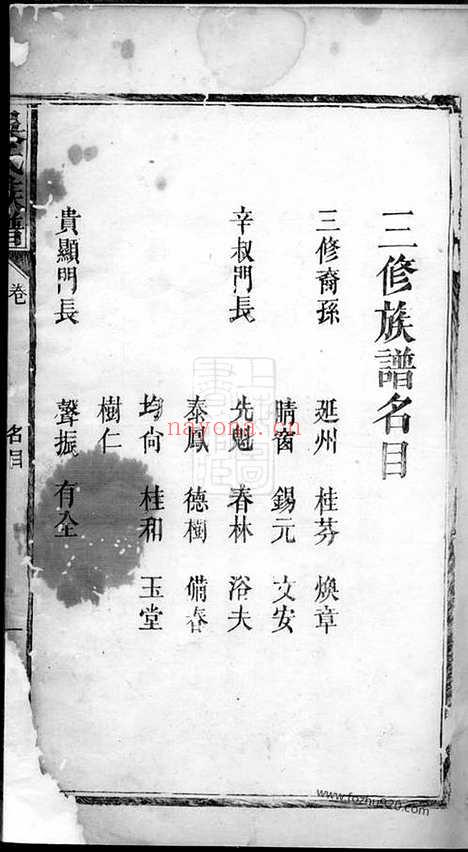 三修族譜名目
三修裔孫 延州 桂芬 煥章
晴窗 錫元 文安
辛叔門長 先魁 春林 浴夫
泰鳳 德樹 備春
均尚 桂和 玉堂
樹仁
貴顯門長 聲振 有全
氏族譜
卷
名目
一
nayona.cn
www.fozhu920.com